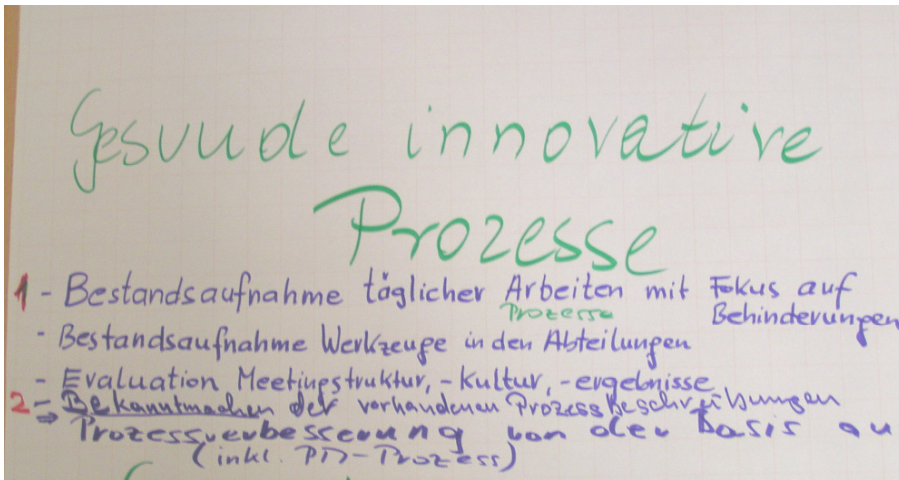 Gesunde innovative
Prozesse
1 - Bestandsaufnahme täglicher Arbeiten mit Fokus auf
Prozesse Behinderungen
- Bestandsaufnahme Werkzeuge in den Abteilungen
- Evaluation Meetingstruktur, -kultur, -ergebnisse
2 - Bekanntmachen der vorhandenen Prozessbeschreibungen
⇒ Prozessverbesserung von der Basis au
(inkl. PD-Prozess)